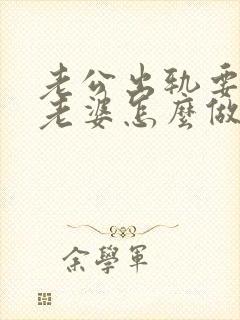 老公出軌要
老婆怎麼做
余學軍